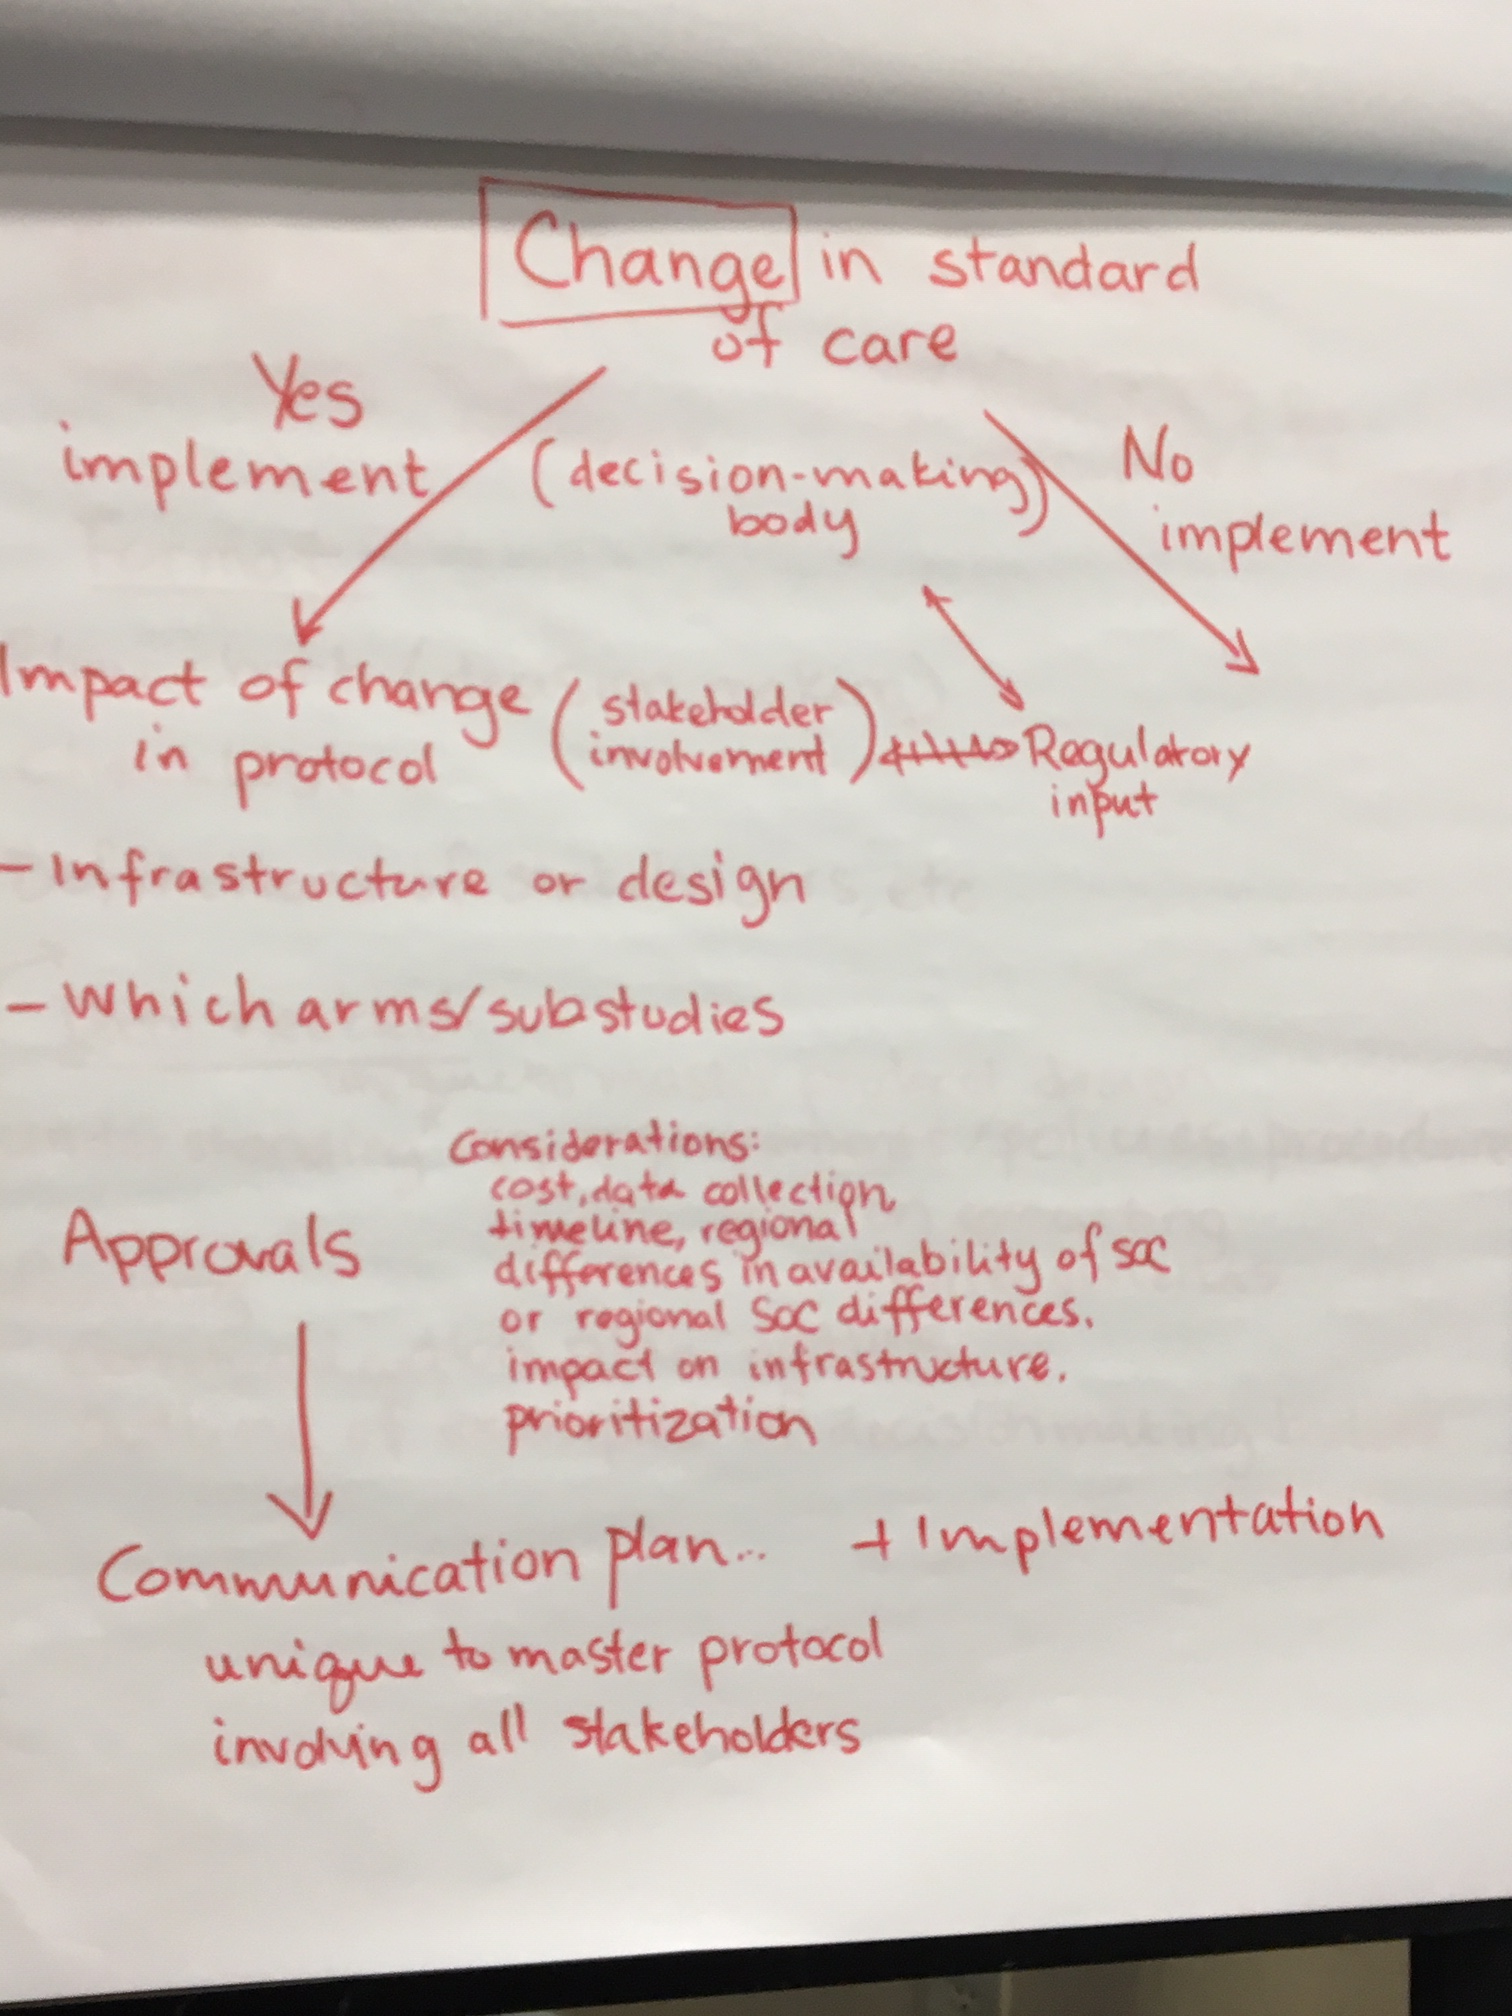 Change in standard
of care
Yes
implement
(decision-making)
body
No
implement
Impact of change
in protocol
(stakeholder
involvement)
Regulatory
input
- Infrastructure or design
- Which arms/substudies
Considerations:
cost, data collection,
timeline, regional
differences in availability of SOC
or regional SOC differences.
impact on infrastructure.
prioritization
Approvals
Communication plan... + Implementation
unique to master protocol
involving all stakeholders